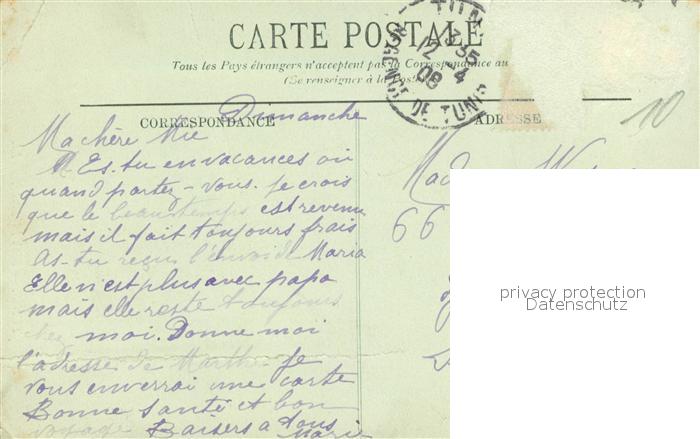 CARTE POSTALE
Tous les Pays étrangers n'acceptent pas la Correspondance au
(Se renseigner à la Poste)
TUNIS
13 35
12 - 4
08
REGENCE DE TUNIS
CORRESPONDANCE
ADRESSE
10
Dimanche
Ma chère Mie
Es-tu en vacances ou
quand partez-vous. Je crois
que le beau temps est revenu
mais il fait toujours frais
As-tu reçu l'envoi de Maria
Elle n'est plus avec papa
mais elle reste toujours
chez moi. Donne moi
l'adresse de Marthe. Je
vous enverrai une carte
Bonne santé et bon
voyage Baisers a tous
Marie
66
privacy protection
Datenschutz